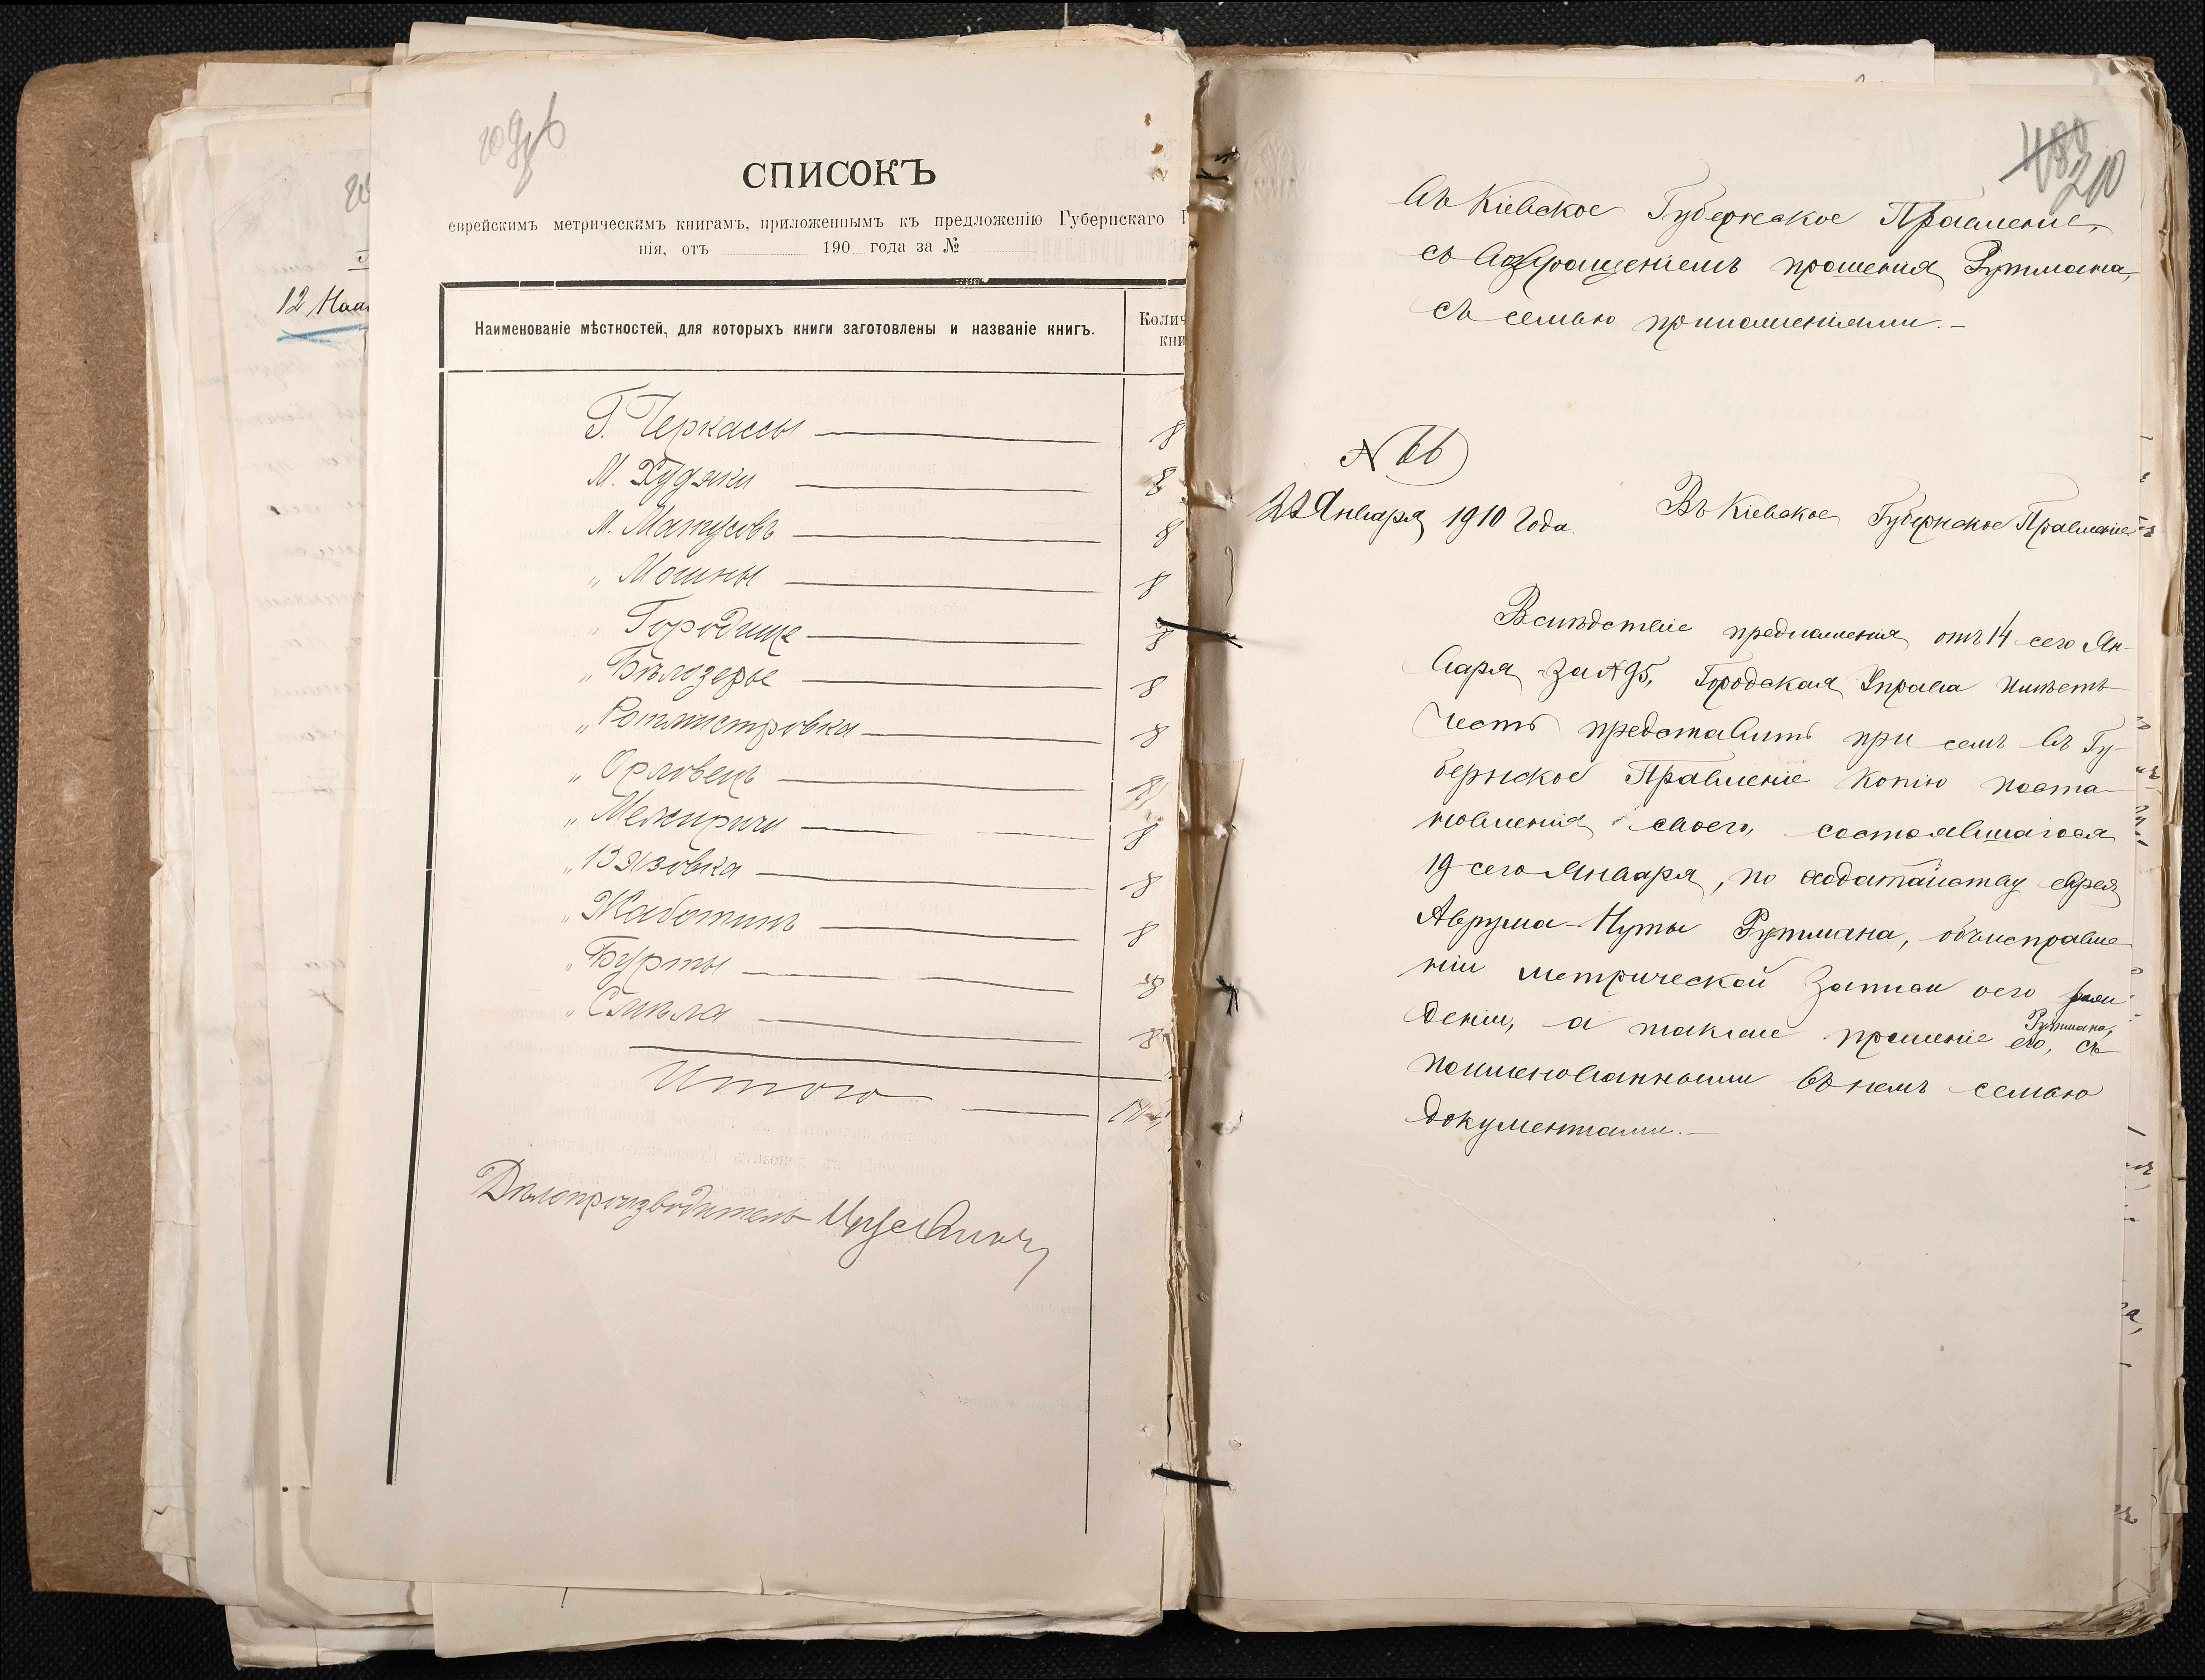 СПИСОКЪ
еврейскимъ метрическимъ книгамъ, приложеннымъ къ предложенію Губернскаго
нія, отъ 190 года за №
Наименованіе мѣстностей, для которыхъ книги заготовлены и названіе книгъ.
Колич
кни
Г. Черкассы — 8
М. Худяки — 8
М. Матусовъ — 8
„ Мошны — 8
„ Городище — 8
„ Бѣлозерье — 8
„ Ротмистровка — 8
„ Орловецъ — 8
„ Межиричи — 8
„ Вязовка — 8
„ Жаботинъ — 8
„ Бурты — 8
„ Смѣла — 8
Итого — 104
Дѣлопроизводитель
12
210
Въ Кіевское Губернское Правленіе,
съ возвращеніемъ прошенія Рутмана,
съ семью приложеніями.—
№ 66
22 Января 1910 года.
Въ Кіевское Губернское Правленіе
Вслѣдствіе предложенія отъ 14 сего Ян-
варя за № 95, Городская Управа имѣетъ
честь представить при семъ въ Гу-
бернское Правленіе копію поста-
новленія своего, состоявшагося
19 сего Января, по ходатайству еврея
Аврума-Нуты Рутмана, объ исправле
ніи метрической записи о его рож
деніи, а также прошеніе его, Рутмана, съ
поименованными въ немъ семью
документами.—